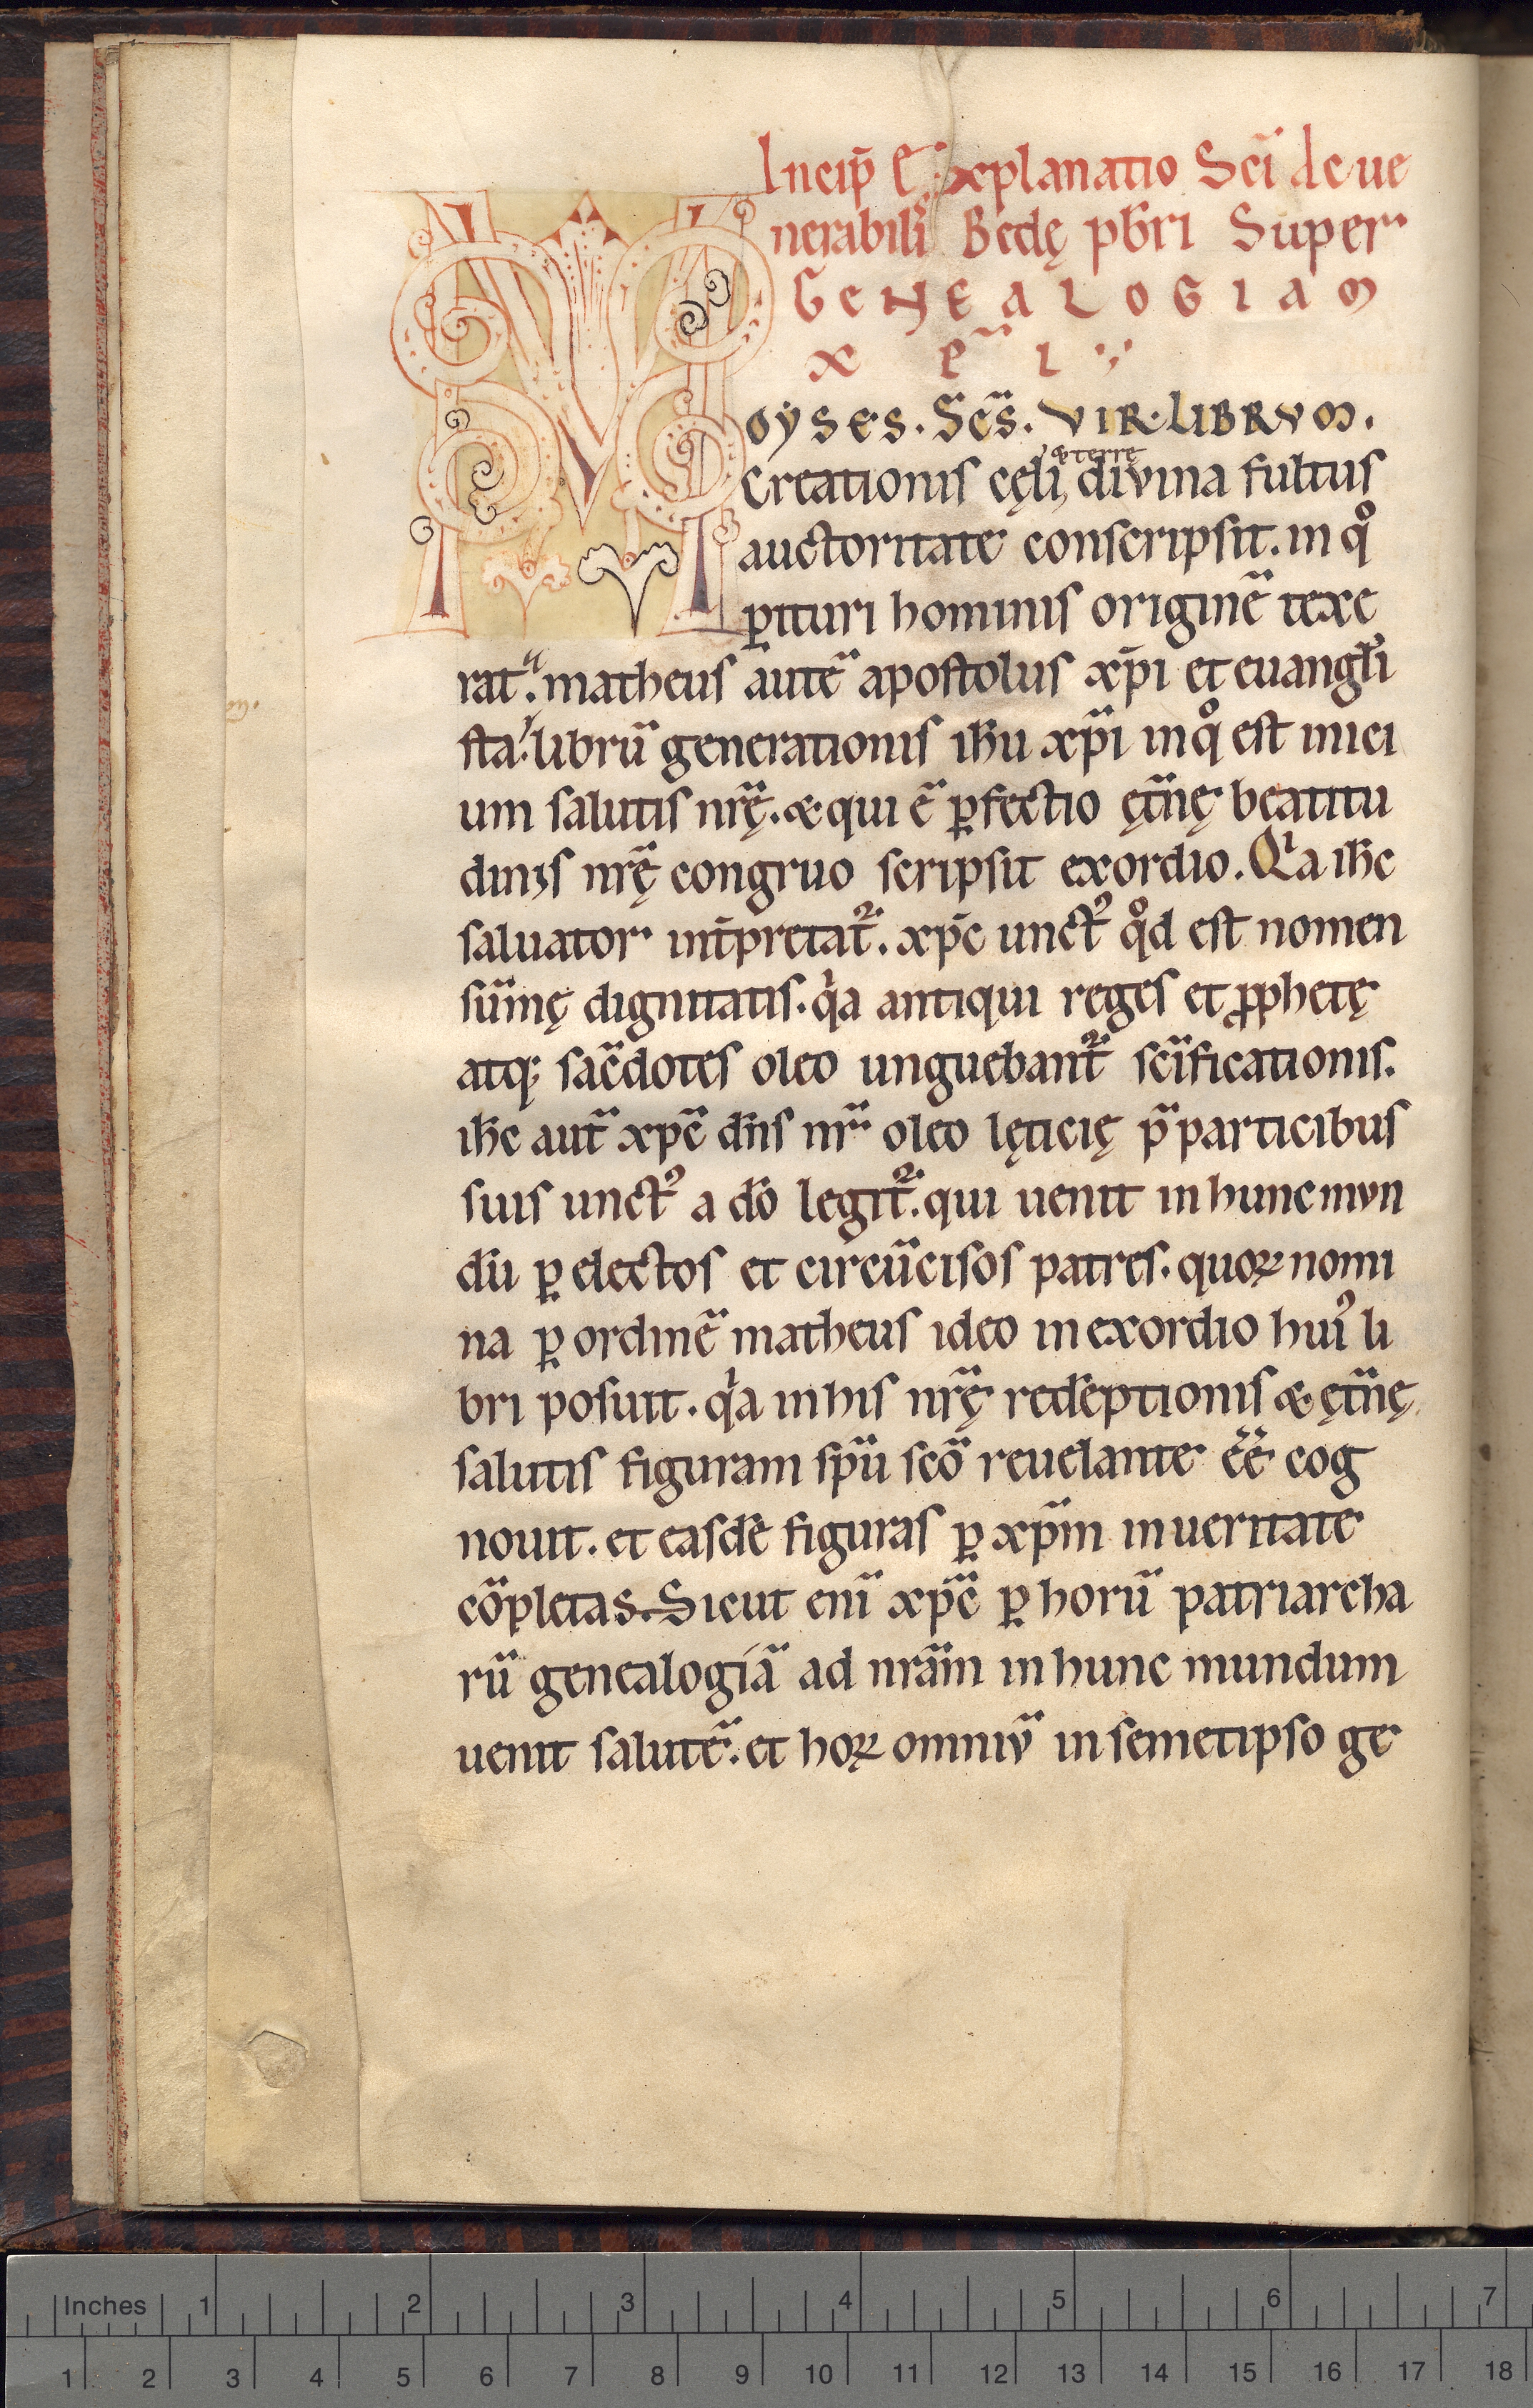 Incip̄ Explanatio Sc̄i de ue
nerabilis Bedę pb̄ri Super
GENEALOGIAM
xp̄i
Moyses. Sc̄s. VIR. LIBRVM.
Creationis cęli, & terre divina fultus
auctoritate conscripsit. in qͦ
ꝑituri hominis originē texe
rat. matheus autē apostolus xp̄i et euangl̄i
sta. librū generationis ih̄u xp̄i in qͦ est inici
um salutis nr̄ę. & qui ē ꝑfectio ęt̄nę beatitu
dinis nr̄ę congruo scripsit exordio. Qͥa ih̄c
saluator int̄p̄retat᷑. xp̄c unctꝰ qͦd est nomen
sūmę dignitatis. qͥa antiqui reges et ꝓphetę
atq; sac̄dotes oleo unguebant᷑ sc̄ificationis.
ih̄c aut̄ xp̄c dn̄s nr̄ oleo lęticię p̄ participibus
suis unctꝰ a dō legit᷑. qui uenit in hunc mvn
dū ꝑ electos et circūcisos patres. quoꝝ nomi
na ꝑ ordinē matheus ideo in exordio huiꝰ li
bri posuit. qͥa in his nr̄ę redēptionis & ęt̄nę
salutis figuram sp̄u sc̄o reuelante ēē cog
nouit. et easdē figuras ꝑ xp̄m in ueritate
cōpletas. Sicut eni̅ xp̄c ꝑ horū patriarcha
rū genealogiā ad nr̄am in hunc mundum
uenit salutē. et hoꝝ omniv̄ in semetipso ge
Inches 1 2 3 4 5 6 7
1 2 3 4 5 6 7 8 9 10 11 12 13 14 15 16 17 18